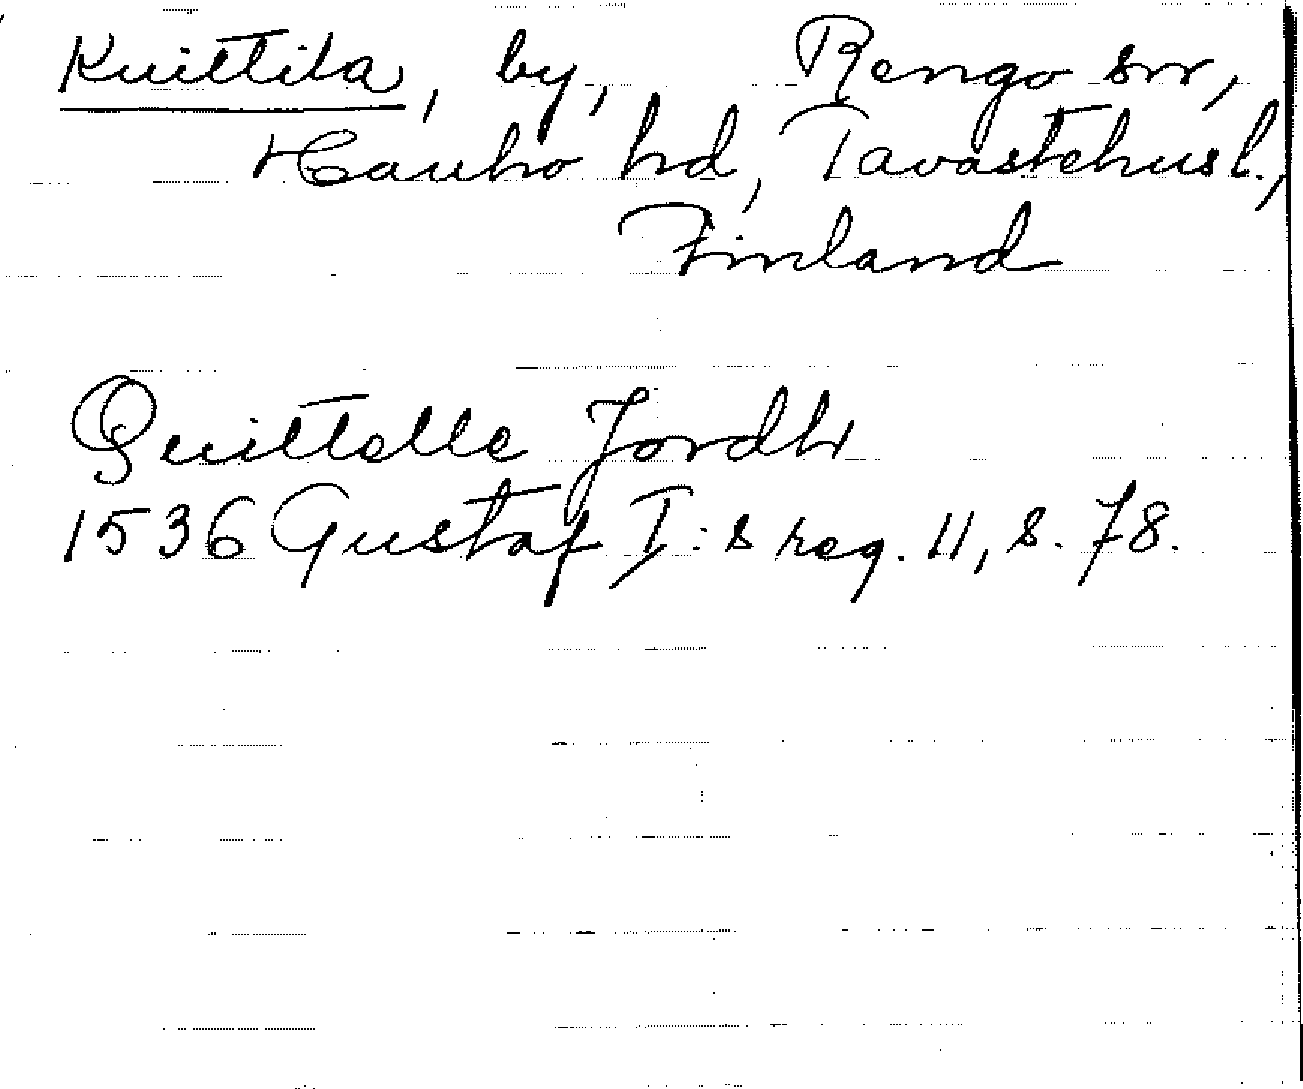 Kuittila, by, Rengo sn,
Hauho hd, Tavastehus l.,
Finland
Quittella Jordh
1536 Gustaf I:s reg. 11, s. 78.